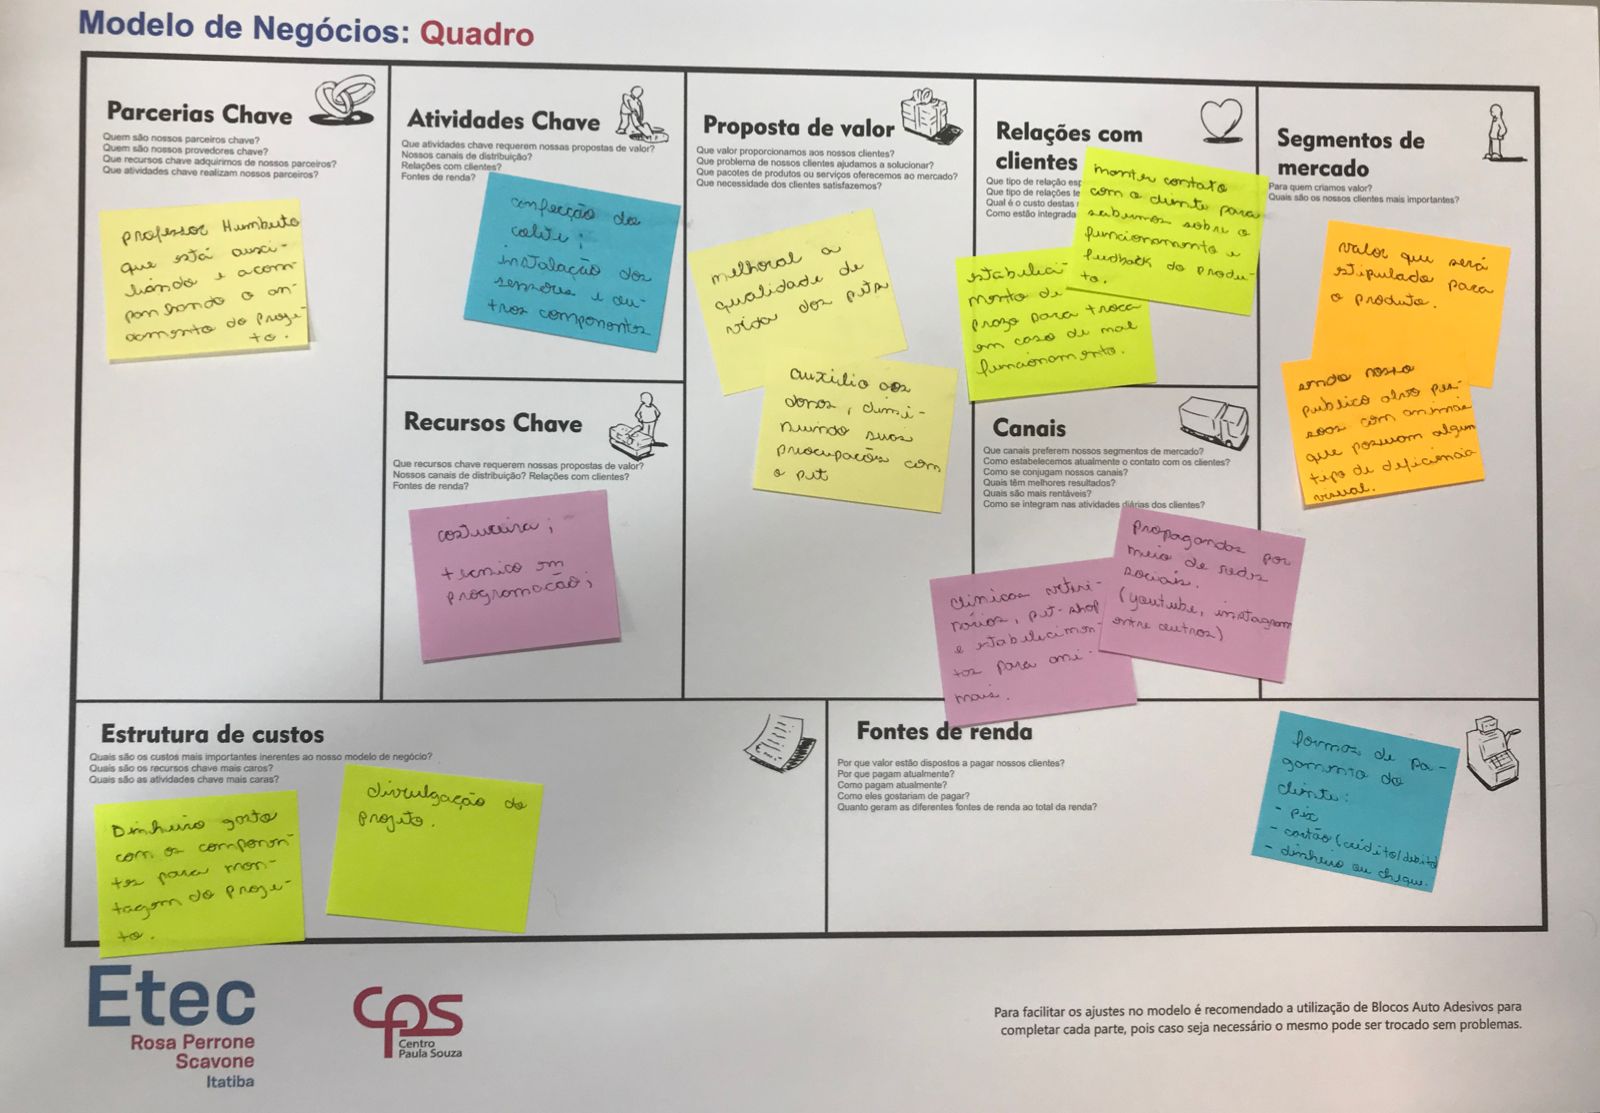 Modelo de Negócios: Quadro
Parcerias Chave
Quem são nossos parceiros chave?
Quem são nossos provedores chave?
Que recursos chave adquirimos de nossos parceiros?
Que atividades chave realizam nossos parceiros?
professor Humberto
que está auxi-
liando e acom-
panhando o an-
damento do proje-
to.
Atividades Chave
Que atividades chave requerem nossas propostas de valor?
Nossos canais de distribuição?
Relações com clientes?
Fontes de renda?
confecção do
colete;
instalação dos
sensores e ou-
tros componentes
Recursos Chave
Que recursos chave requerem nossas propostas de valor?
Nossos canais de distribuição? Relações com clientes?
Fontes de renda?
costureira;
tecnico em
programação;
Proposta de valor
Que valor proporcionamos aos nossos clientes?
Que problema de nossos clientes ajudamos a solucionar?
Que pacotes de produtos ou serviços oferecemos ao mercado?
Que necessidade dos clientes satisfazemos?
melhorar a
qualidade de
vida dos pets
auxilio aos
donos, dimi-
nuindo suas
preocupações com
o pet
Relações com
clientes
Que tipo de relação esp
Que tipo de relações te
Qual é o custo destas
Como estão integrada
manter contato
com o cliente para
sabermos sobre o
funcionamento e
feedback do produ-
to.
estabeleci-
mento de
prazo para troca
em caso de mal
funcionamento.
Canais
Que canais preferem nossos segmentos de mercado?
Como estabelecemos atualmente o contato com os clientes?
Como se conjugam nossos canais?
Quais têm melhores resultados?
Quais são mais rentáveis?
Como se integram nas atividades diárias dos clientes?
Propagandas por
meio de redes
sociais.
(youtube, instagram
entre outros)
clinicas veteri-
nárias, pet-shop
e estabelecimen-
tos para ani-
mais.
Segmentos de
mercado
Para quem criamos valor?
Quais são os nossos clientes mais importantes?
valor que será
stipulado para
o produto.
sendo nosso
publico alvo pes-
soas com animais
que possuam algum
tipo de deficiencia
visual.
Estrutura de custos
Quais são os custos mais importantes inerentes ao nosso modelo de negócio?
Quais são os recursos chave mais caros?
Quais são as atividades chave mais caras?
Dinheiro gasto
com os componen-
tes para mon-
tagem do proje-
to.
divulgação do
projeto.
Fontes de renda
Por que valor estão dispostos a pagar nossos clientes?
Por que pagam atualmente?
Como pagam atualmente?
Como eles gostariam de pagar?
Quanto geram as diferentes fontes de renda ao total da renda?
formas de pa-
gamento do
cliente:
- pix
- cartão (crédito/debito)
- dinheiro ou cheque.
Etec
Rosa Perrone
Scavone
Itatiba
cps
Centro
Paula Souza
Para facilitar os ajustes no modelo é recomendado a utilização de Blocos Auto Adesivos para
completar cada parte, pois caso seja necessário o mesmo pode ser trocado sem problemas.